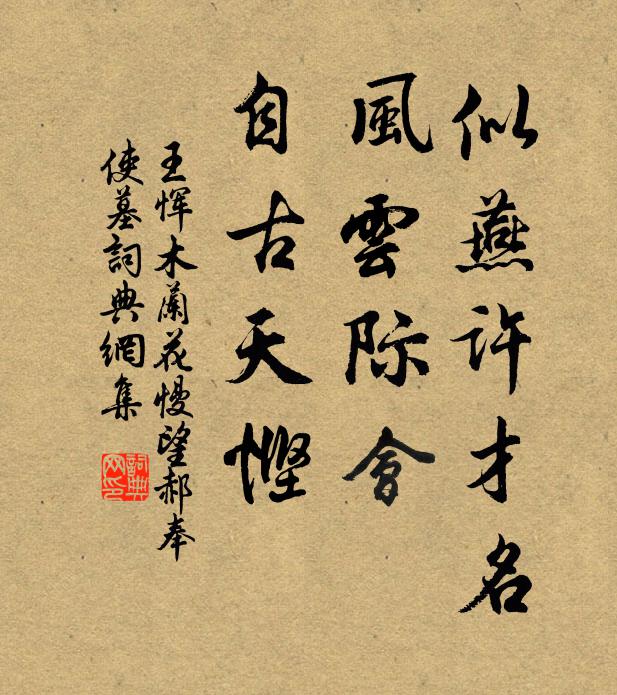 似燕许才名
風雲际會
自古天慳
王恽木蘭花慢望郝奉
使墓詞典網集
詞典网印